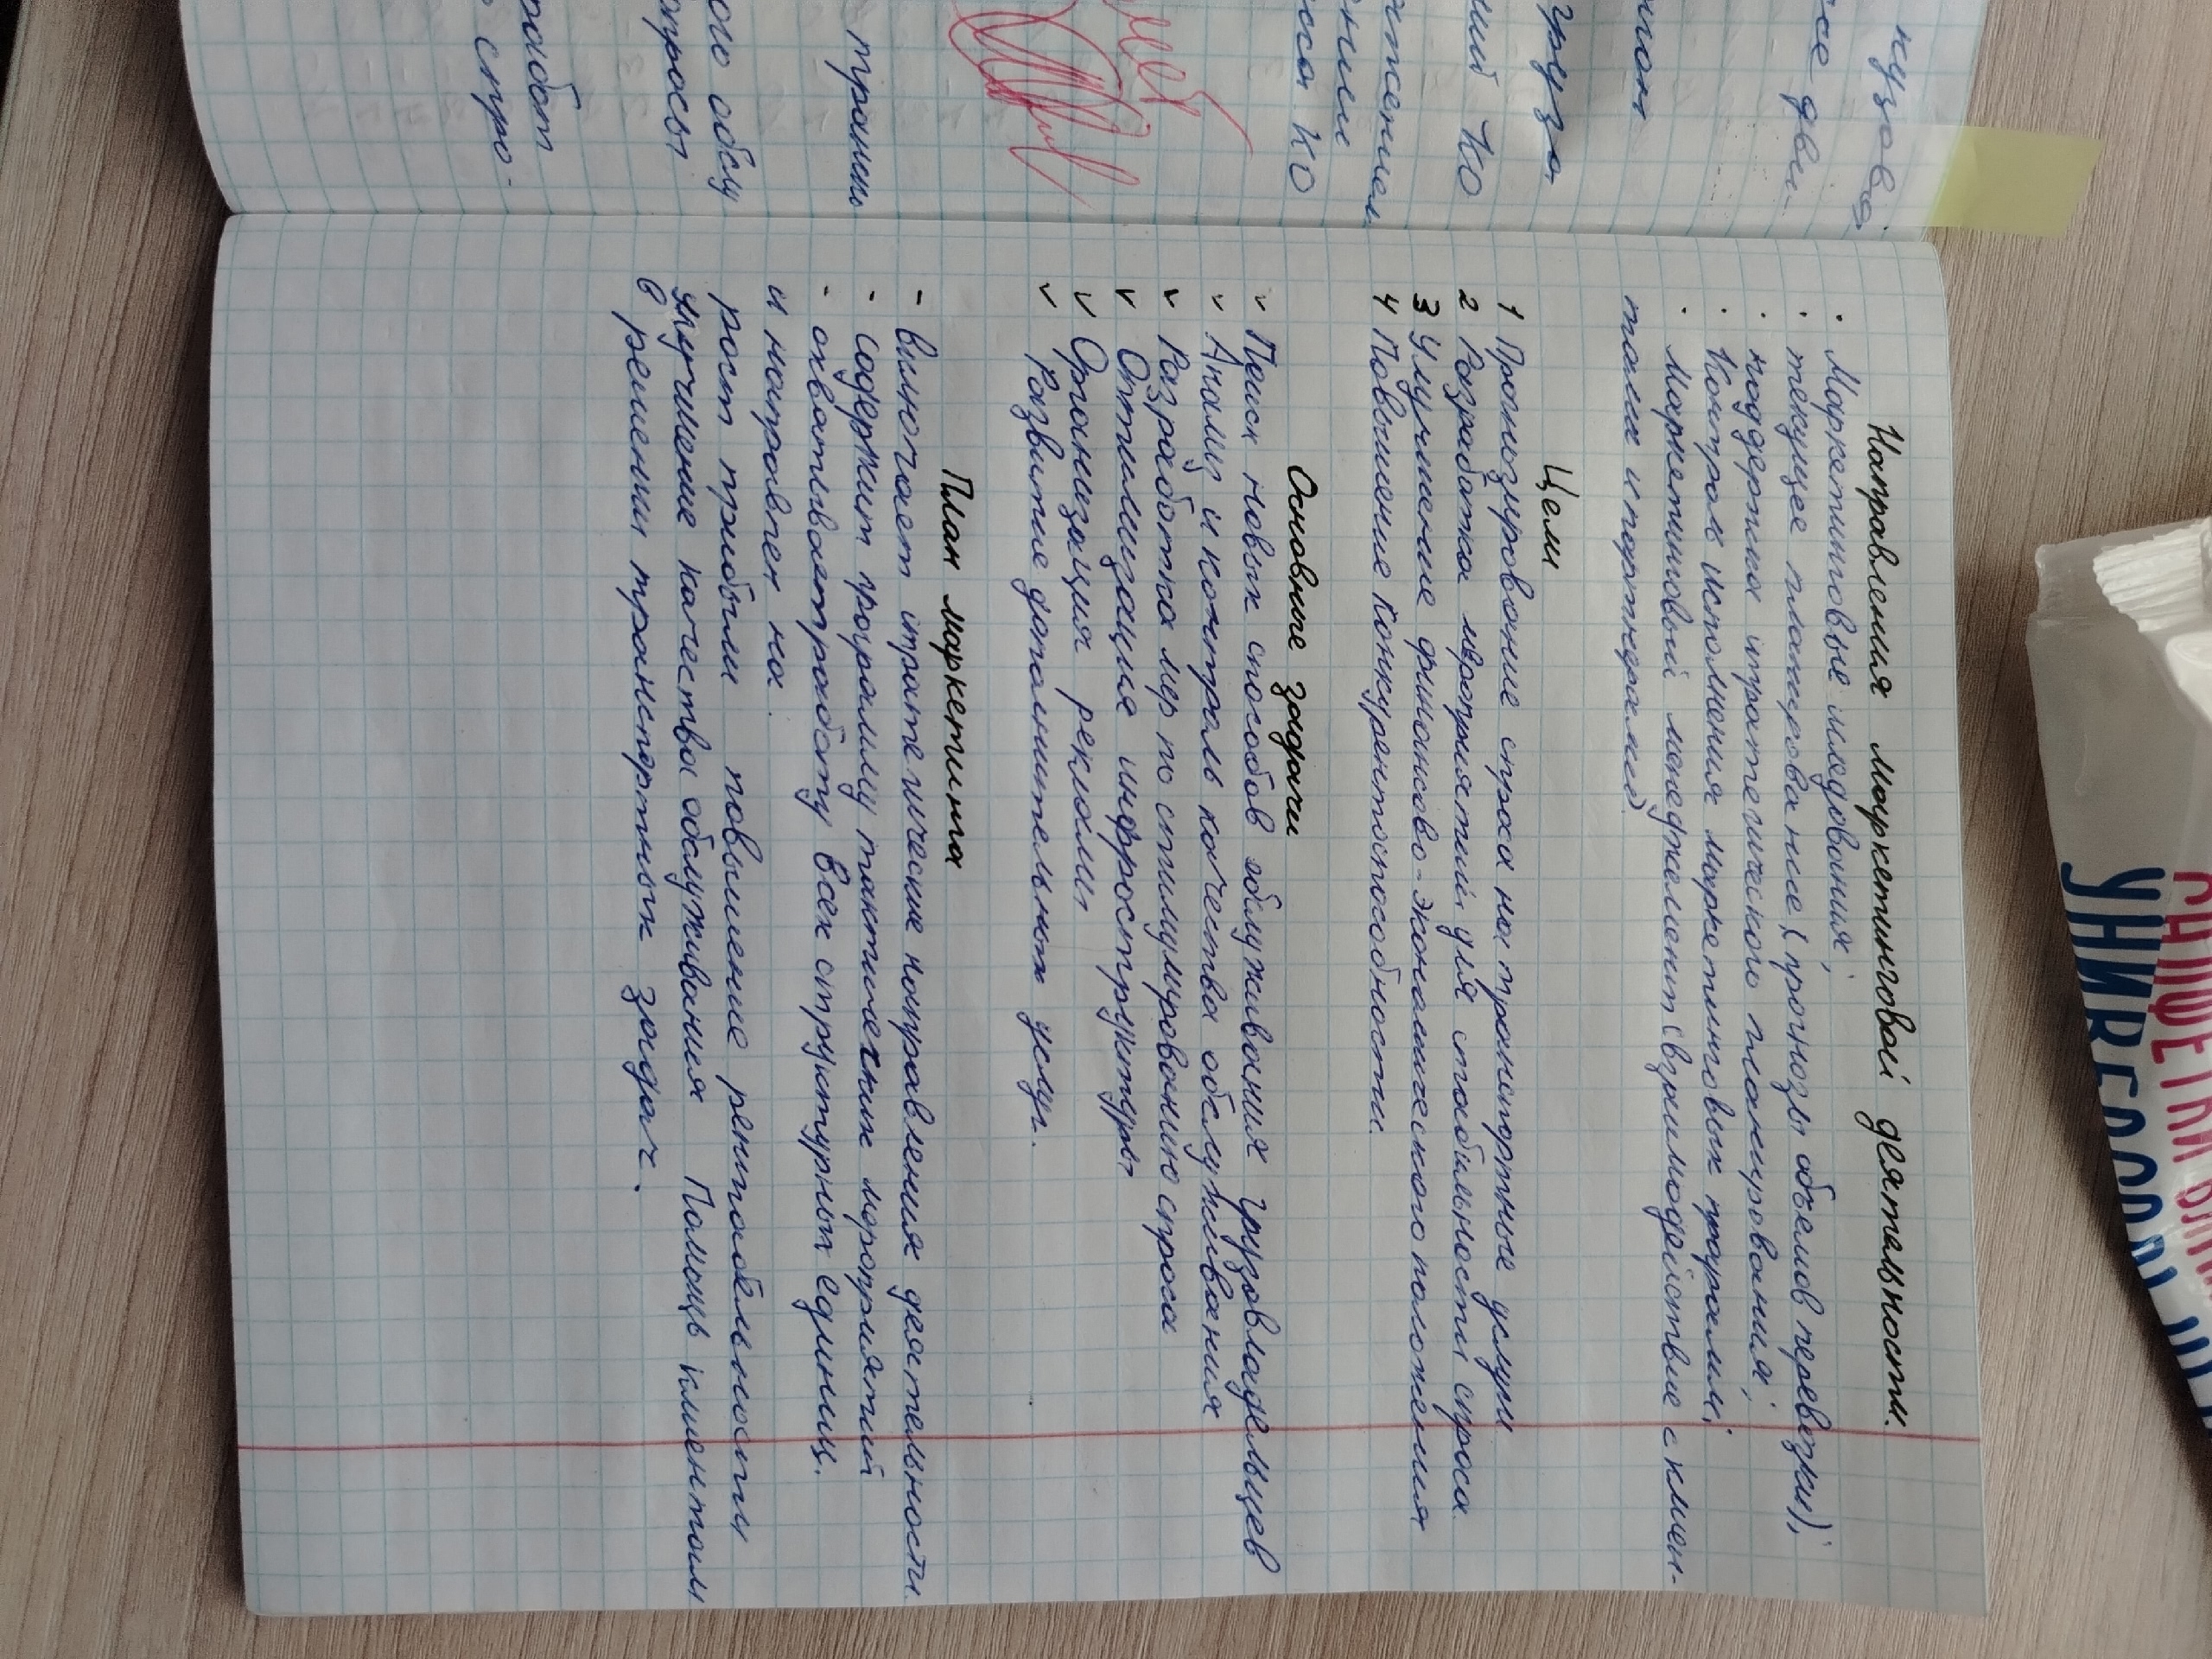 Направления маркетинговой деятельности.
· Маркетинговые исследования;
· текущее планирование (прогнозы объемов перевозки);
· поддержка стратегического планирования;
· Контроль исполнения маркетинговых программ;
· Маркетинговый менеджмент (взаимодействие с клиен-
тами и партнерами).
Цели
1 Прогнозирование спроса на транспортные услуги
2 Разработка мероприятий для стабильности спроса
3 Улучшение финансово-экономического положения
4 Повышение конкурентоспособности.
Основные задачи
v Поиск новых способов обслуживания грузовладельцев
v Анализ и контроль качества обслуживания
v Разработка мер по стимулированию спроса
v Оптимизация инфраструктуры
v Организация рекламы
v Развитие дополнительных услуг.
План маркетинга
- включает стратегические направления деятельности.
- Содержит программу тактических мероприятий
- охватывает работу всех структурных единиц.
и направлен на.
рост прибыли повышение рентабельности
улучшение качества обслуживания Помощь клиентам
в решении транспортных задач.
кузова
груза
ний КО
са КО
обслу
работ
САЛФЕТКИ
УНИВЕРСАЛ